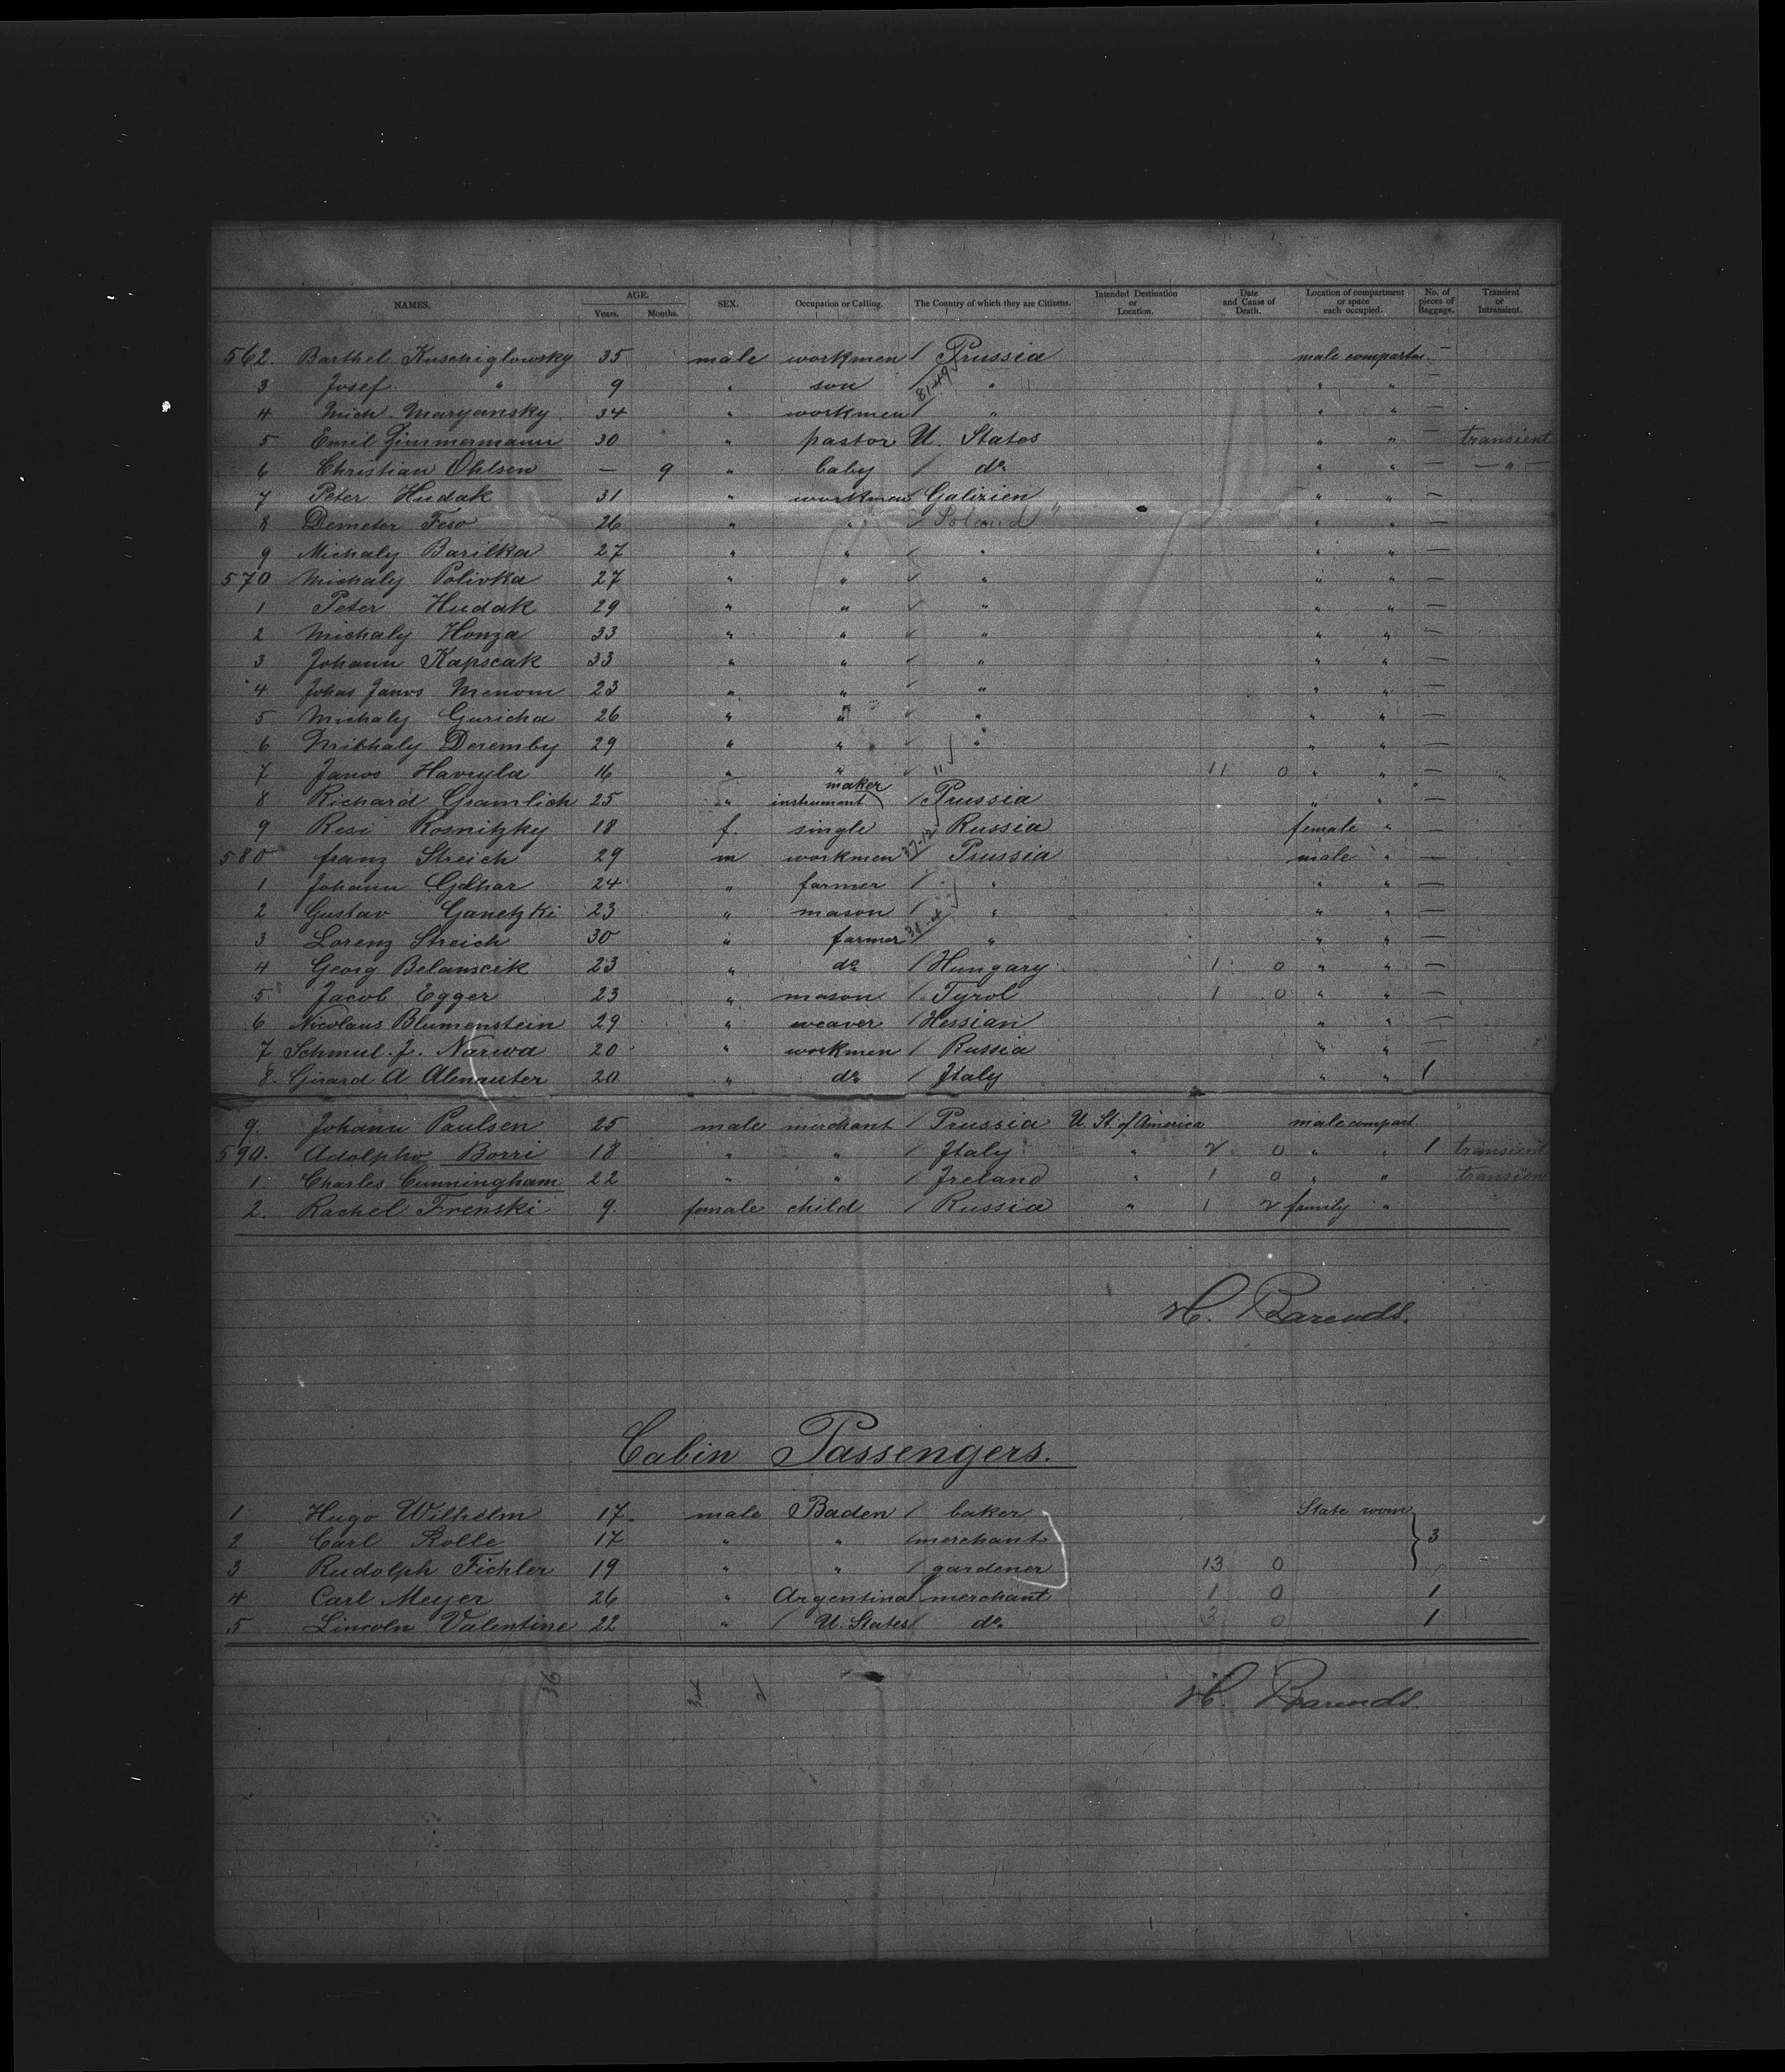 NAMES. AGE. Years. Months. SEX. Occupation or Calling. The Country of which they are Citizens. Intended Destination or Location. Date and Cause of Death. Location of compartment or space each occupied. No. of pieces of Baggage. Transient or Intransient.
562. Barthel Kuschiglowsky 35 male workmen / Prussia male compartm. —
3 Josef " 9 " son 81-49 " " " —
4 Mich. Maryansky 34 " workmen / " " " —
5 Emil Zimmermann 30 " pastor U. States " " — transient
6 Christian Ohlsen — 9 " baby / do. " " — — " —
7 Peter Hudak 31 " workmen Galizien " " —
8 Demeter Feso 26 " " / Poland " " " —
9 Michaly Barilka 27 " " / " " " —
570 Michaly Polivka 27 " " / " " " —
1 Peter Hudak 29 " " / " " " —
2 Michaly Honza 33 " " / " " " —
3 Johann Kapscak 33 " " / " " " —
4 Johas Janos Menom 23 " " / " " " —
5 Michaly Guricha 26 " " / " " " —
6 Mikhaly Deremby 29 " " / " " " —
7 Janos Havryla 16 " " / 11 11 0 " " —
8 Richard Gramlich 25 " instrument maker / Prussia " " —
9 Resi Rosnitzky 18 f. single Russia female " —
580 franz Streich 29 m workmen 37-12 / Prussia male " —
1 Johann Gelhar 24 " farmer / " " " —
2 Gustav Ganetzki 23 " mason / " " " —
3 Lorenz Streich 30 " farmer / " " " —
4 Georg Belanscik 23 " do. / Hungary 1 0 " " —
5 Jacob Egger 23 " mason / Tyrol 1 0 " " —
6 Nicolaus Blumenstein 29 " weaver / Hessian " " —
7 Schmul. J. Narwa 20 " workmen / Russia " " —
8. Girard A Alenauter 20 " do. / Italy " " 1
9. Johann Paulsen 25 male merchant / Prussia U. St. of America male compart
590. Adolpho Borri 18 " " / Italy " 2 0 " " 1 transient
1. Charles Cunningham 22 " " / Ireland " 1 0 " " transient
2. Rachel Frenski 9. female child / Russia " 1 2 family "
H. Barends.
Cabin Passengers.
1 Hugo Wilhelm 17 male Baden / baker State room
2 Carl Rolle 17 " " / merchant } 3
3 Rudolph Fichler 19 " " / gardener 13 0
4 Carl Meyer 26 " Argentina / merchant 1 0 1
5 Lincoln Valentine 22 " / U. States / do. 3 0 1
36 34 2
H. Barends.